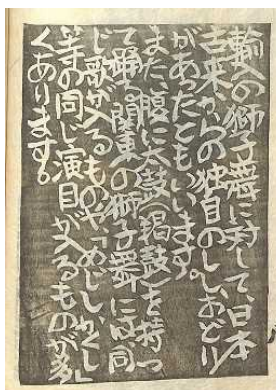 輸入の獅子舞に対して、日本
古来からの独自のししおどり
があったともいいます。
また、腹に太鼓(羯鼓)を持っ
て踊る関東の獅子舞には、同
じ歌が入るものや、「めじしかくし」
等の同じ演目が入るものが多
くあります。